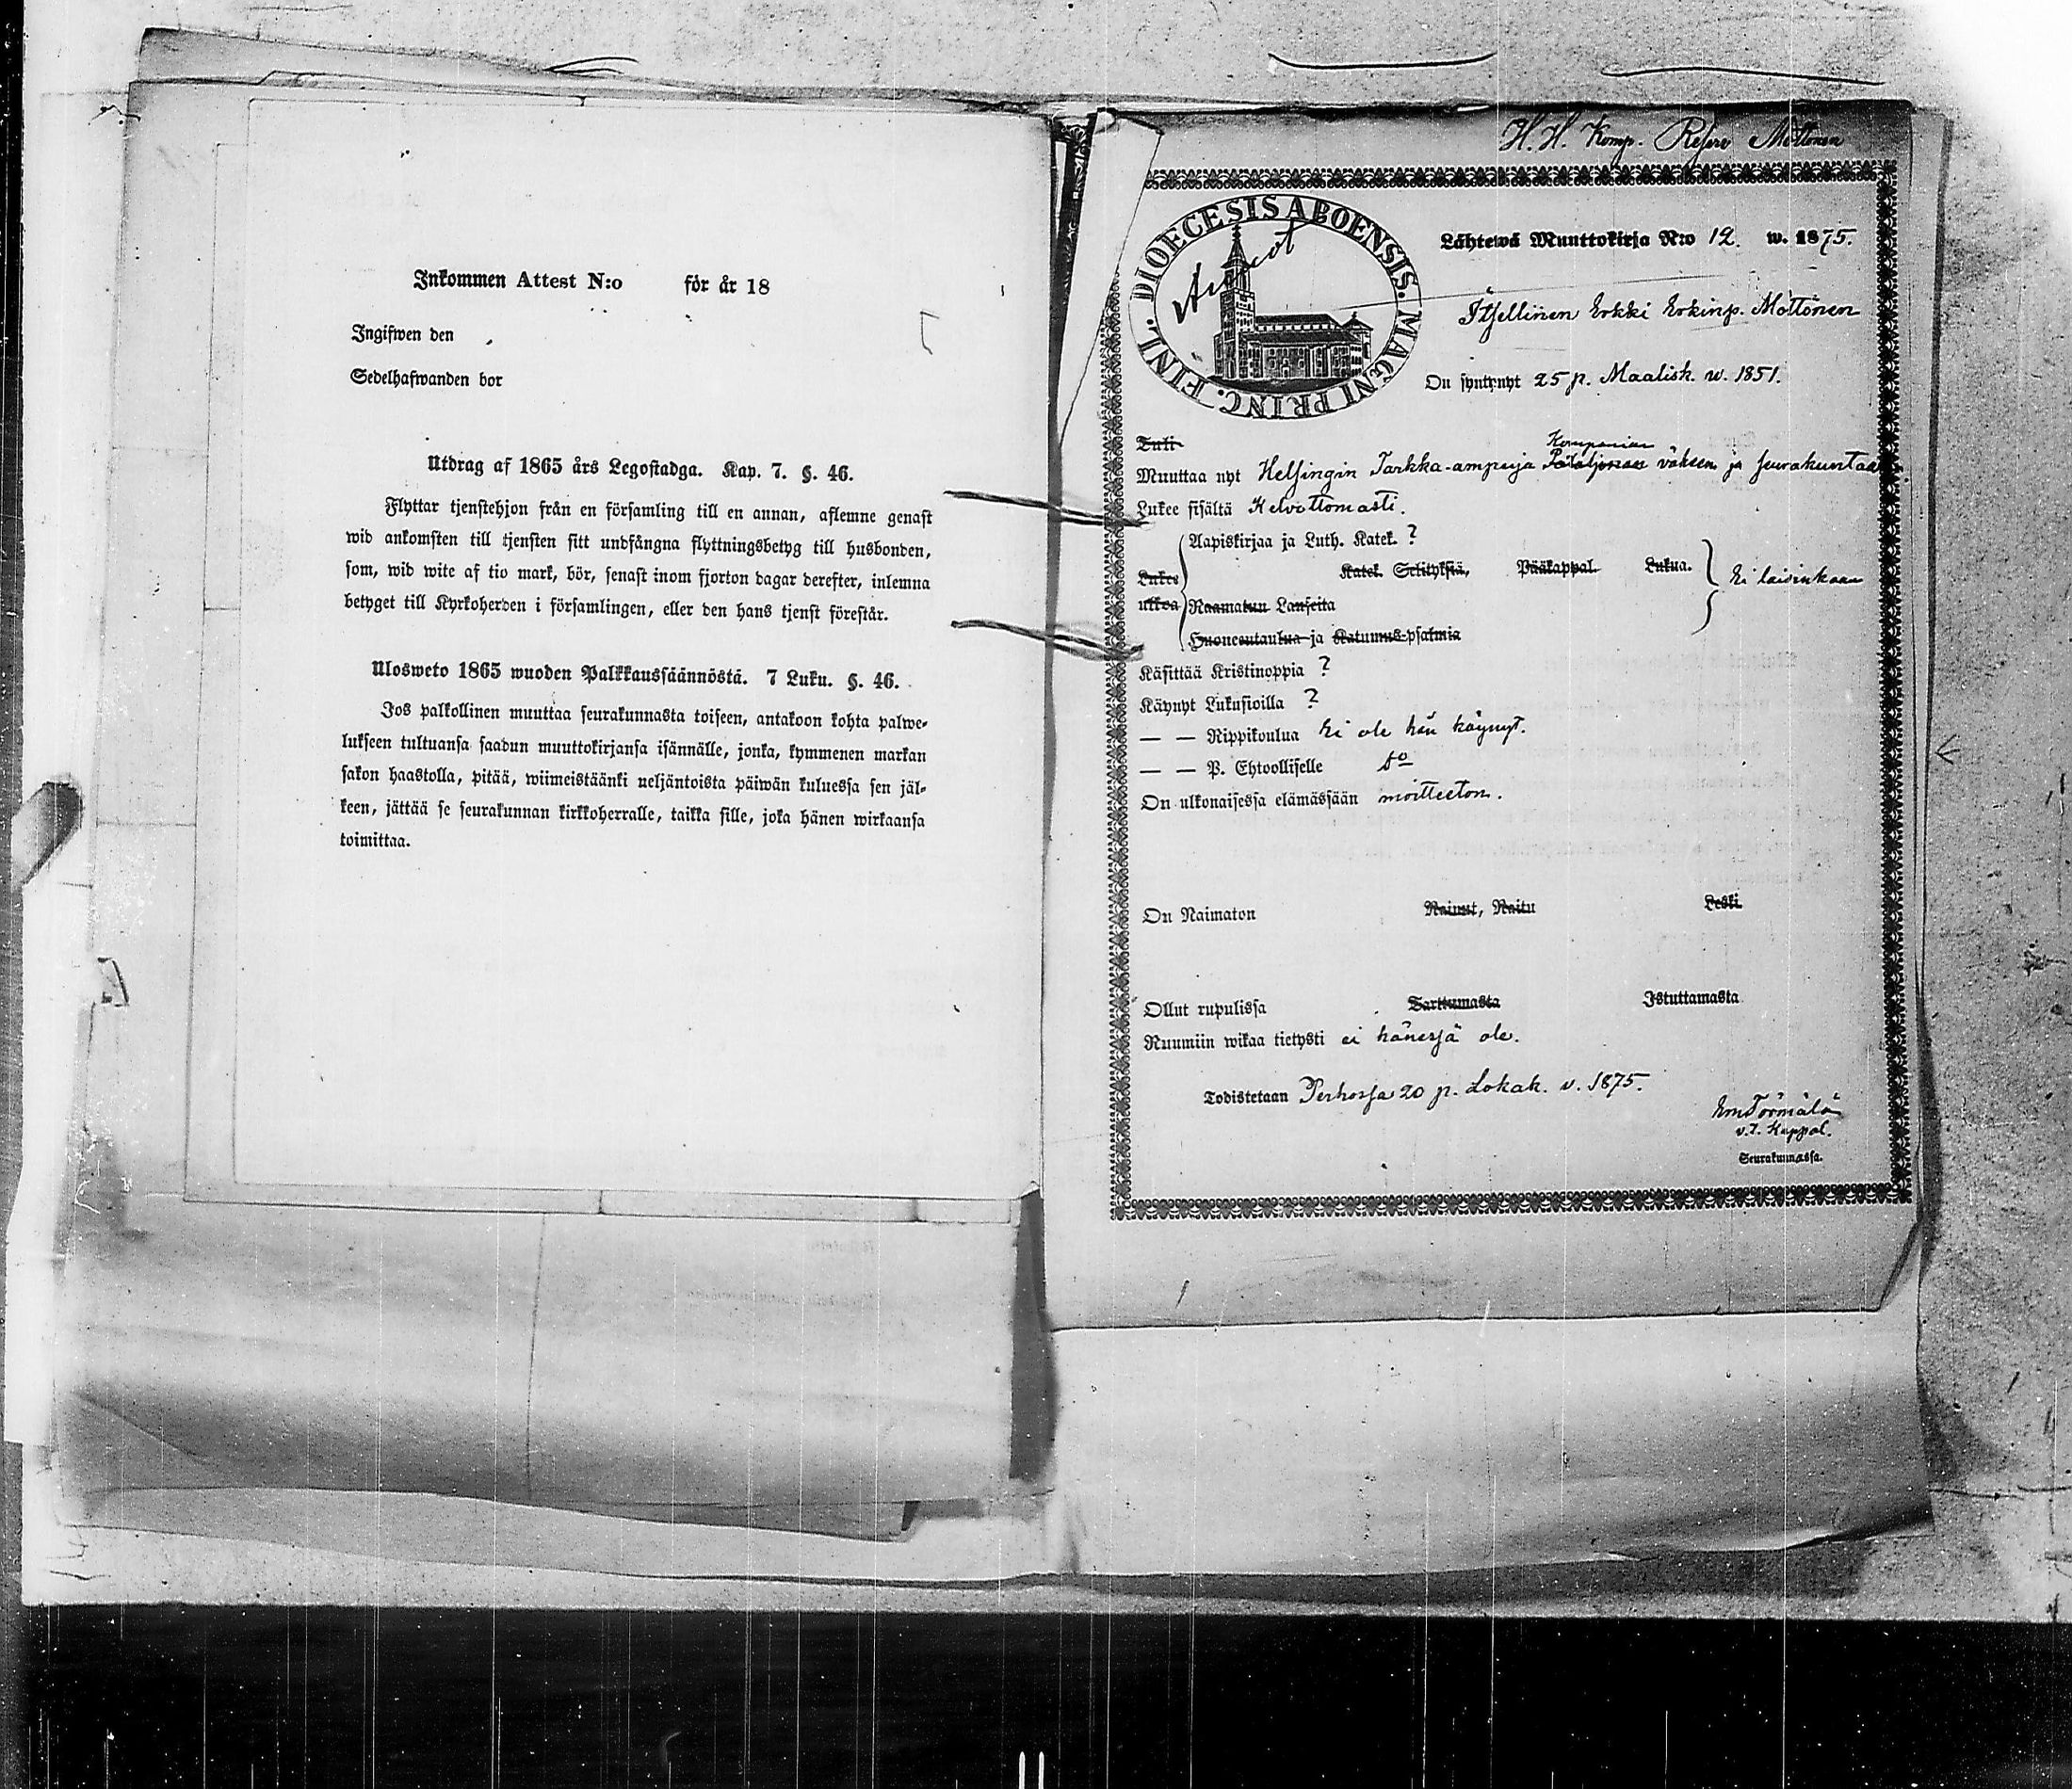 Inkommen Attest N:o för år 18
Ingifwen den
Sedelhafwanden bor
Utdrag af 1865 års Legostadga. Kap. 7. §. 46.
Flyttar tjenstehjon från en församling till en annan, aflemne genast
wid ankomsten till tjensten sitt undfångna flyttningsbetyg till husbonden,
som, wid wite af tio mark, bör, senast inom fjorton dagar derefter, inlemna
betyget till Kyrkoherden i församlingen, eller den hans tjenst förestår.
Ulosweto 1865 wuoden Palkkaussäännöstä. 7 Luku. §. 46.
Jos palkollinen muuttaa seurakunnasta toiseen, antakoon kohta palwe-
lukseen tultuansa saadun muuttokirjansa isännälle, jonka, kymmenen markan
sakon haastolla, pitää, wiimeistäänki neljäntoista päiwän kuluessa sen jäl-
keen, jättää se seurakunnan kirkkoherralle, taikka sille, joka hänen wirkaansa
toimittaa.
H. H. Komp. Reserv Möttönen
DIOECESIS ABOENSIS. MAGNI PRINC. FINL.
Lähtewä Muuttokirja N:o 12. w. 1875.
Itsellinen Erkki Erkinp. Möttönen
On syntynyt 25 p. Maalisk. w. 1851.
Tuli
Kompanian
Muuttaa nyt Helsingin Tarkka-ampuja Pataljonan väkeen ja seurakuntaa
Lukee sisältä Kelvottomasti.
Aapiskirjaa ja Luth. Katek. ?
Lukee Katek. Selityksiä, Pääkappal. Lukua. Ei laisinkaan
ulkoa Raamatun Lauseita
Huoneentaulua ja Katumus-psalmia
Käsittää Kristinoppia ?
Käynyt Lukusioilla ?
— — Rippikoulua Ei ole hän käynyt.
— — P. Ehtoolliselle do
On ulkonaisessa elämässään moitteeton.
On Naimaton Nainut, Naitu Leski.
Ollut rupulissa Tarttumasta Istuttamasta
Ruumiin wikaa tietysti ei hänessä ole.
Todistetaan Perhossa 20 p. Lokak. v. 1875.
Em Törmälä
v.t. Kappal.
Seurakunnassa.